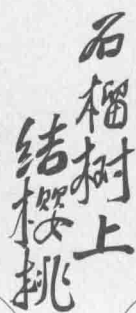 石榴树上
结樱桃